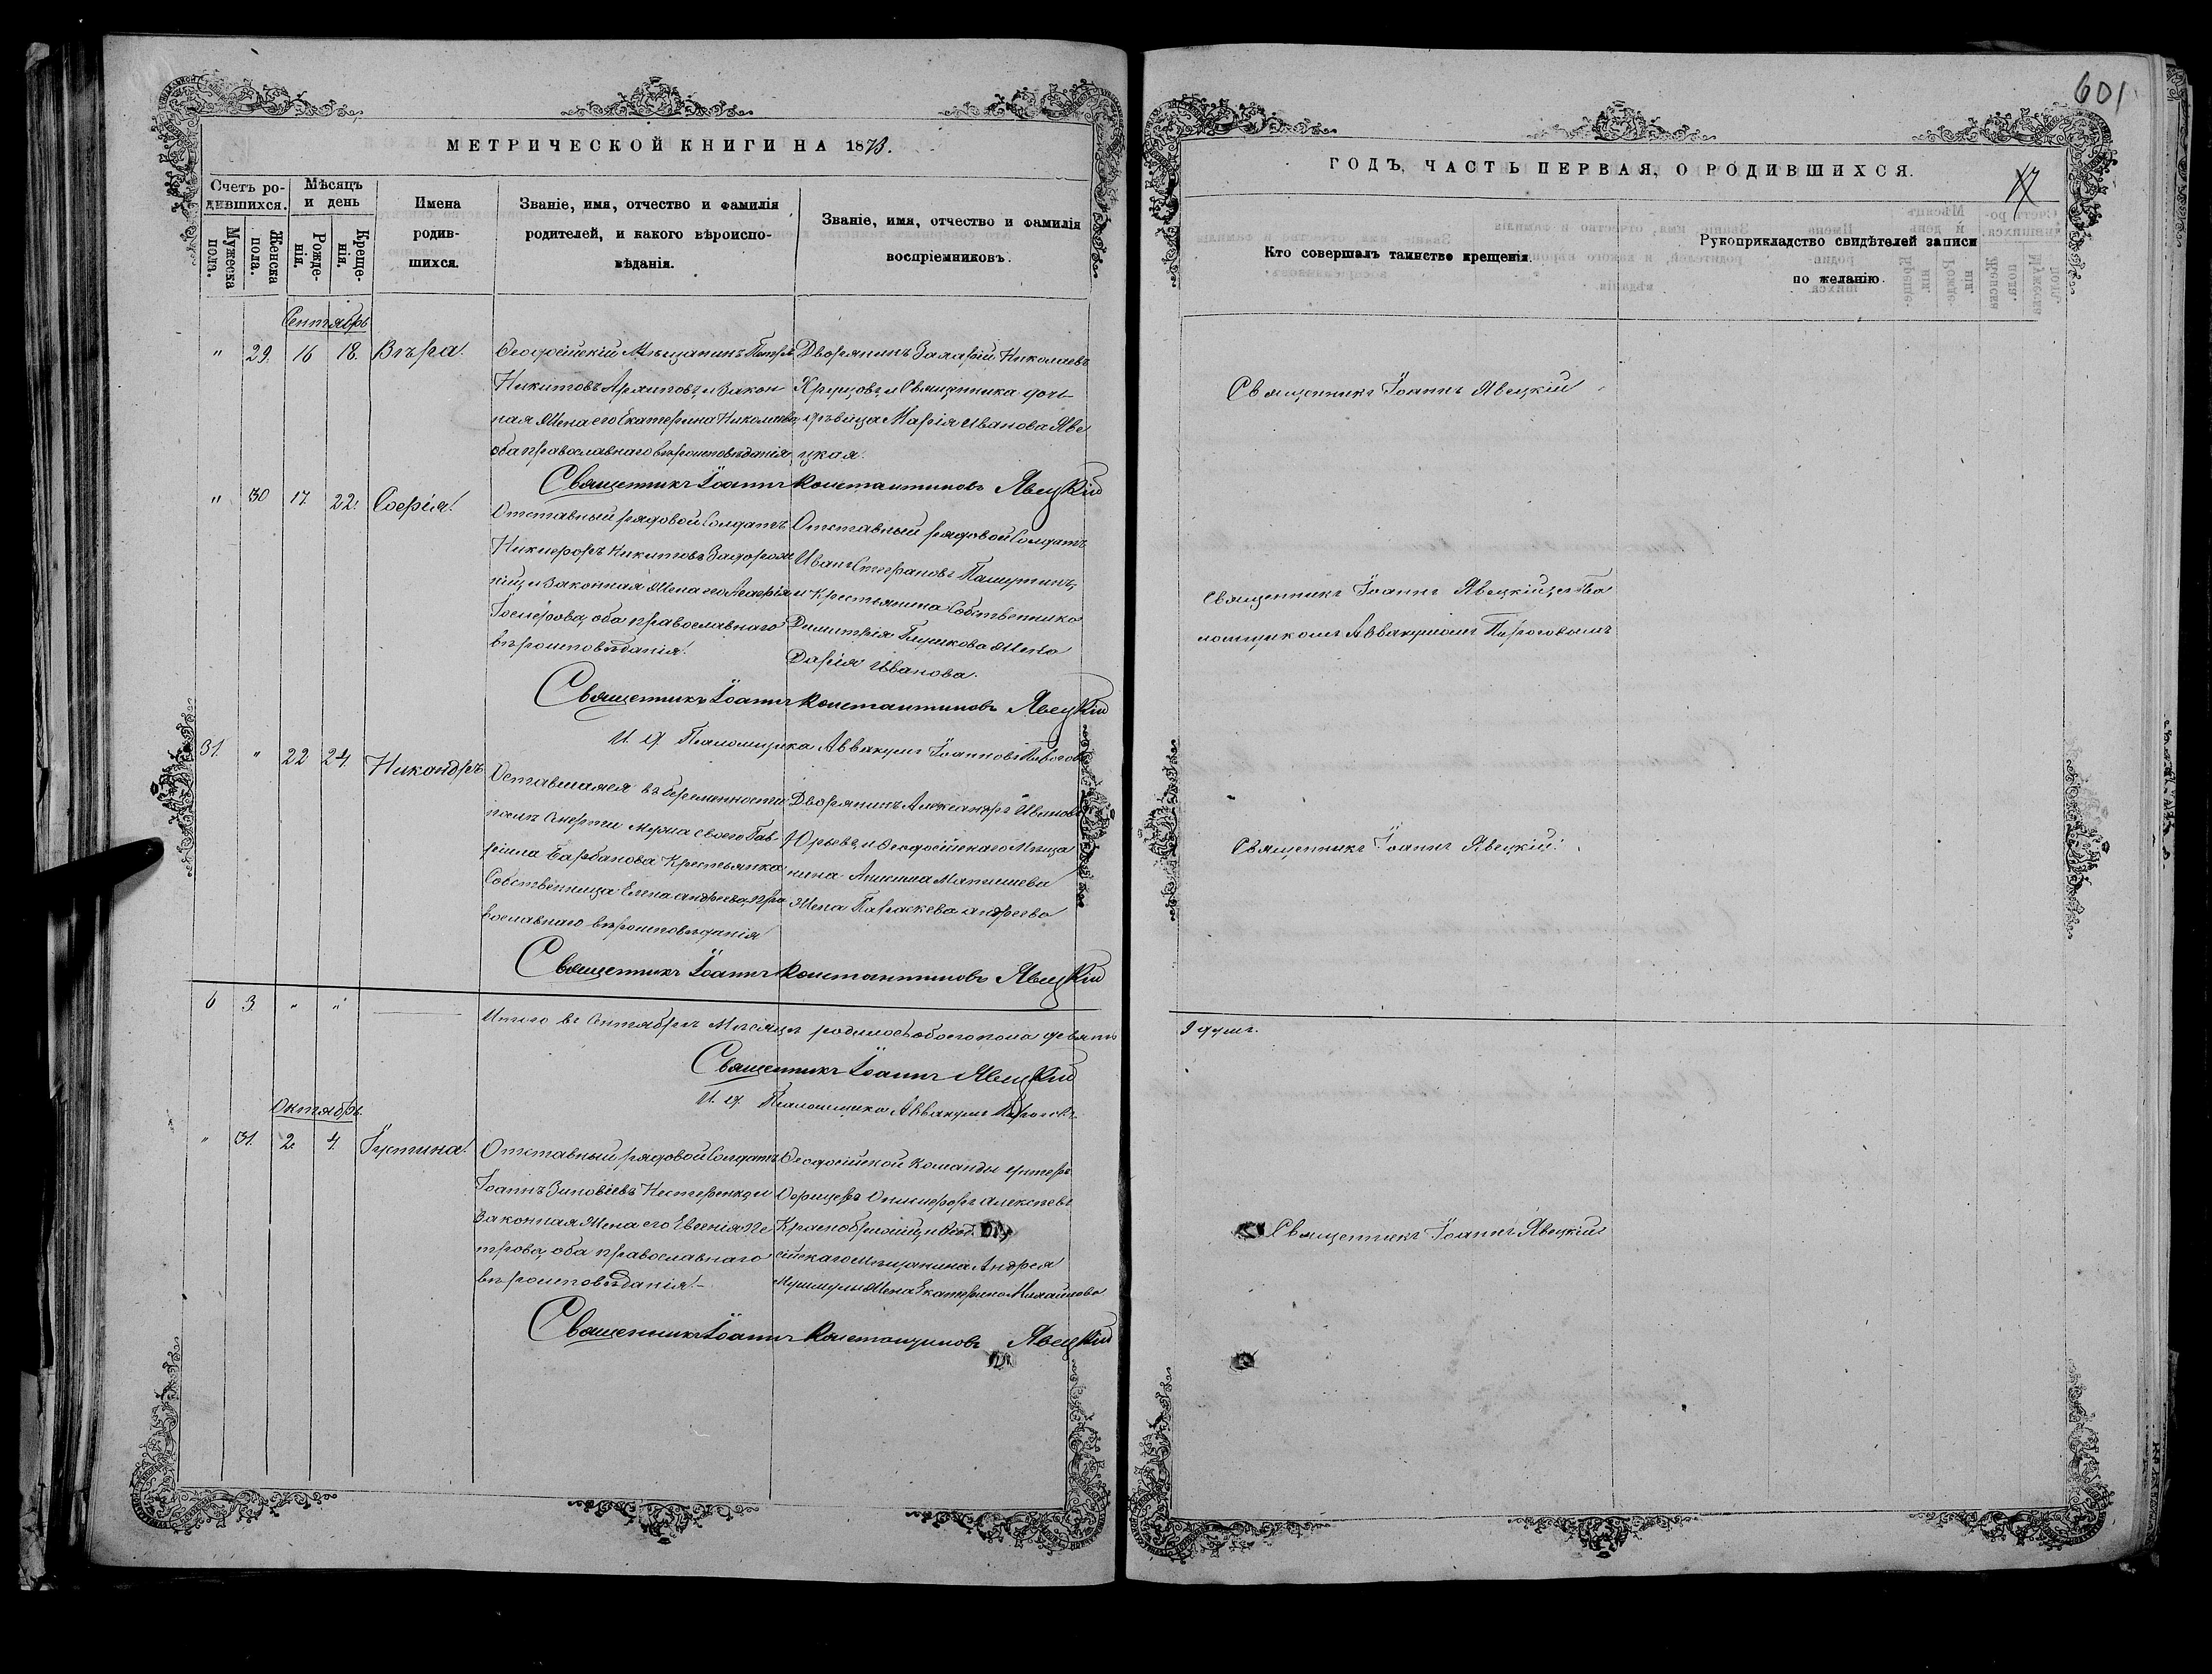 МЕТРИЧЕСКОЙ КНИГИ НА 1873.
Счетъ ро-
дившихся.
Мѣсяцъ
и день
Мужеска
пола.
Женска
пола.
Рожде-
нія.
Креще-
нія.
Имена
родив-
шихся.
Званіе, имя, отчество и фамилія
родителей, и какого вѣроиспо-
вѣданія.
Званіе, имя, отчество и фамилія
воспріемниковъ.
Сентябрь
" 29. 16 18. Вѣра.
Ѳеодосійскій Мѣщанинъ Петръ
Никитовъ и Закон
ная Жена его Екатерина Николаева,
оба православнаго вѣроисповѣданія,
Дворянинъ Николаевъ
и Священника дочь
дѣвица Марія Иванова Яве
цкая.
Священникъ Іоаннъ Константиновъ Явецкій
" 30 17 22. Софія.
Отставный рядовой Солдатъ
Никифоръ Никитовъ Задорож
ній, и Законная Жена его Агафія
оба православнаго
вѣроисповѣданія.
Отставный рядовой Солдатъ
Иванъ Стефановъ
и Крестьянина Собственника
Димитрія Жена
Дарія Иванова.
Священникъ Іоаннъ Константиновъ Явецкій
И. д. Псаломщика Аввакумъ Іоанновъ Пироговъ
31. " 22 24. Никандръ
Оставшаяся въ беременности
послѣ Смерти Мужа своего Гав-
ріила Барбанова Крестьянка
Собственница Елена Андреева, пра
вославнаго вѣроисповѣданія
Дворянинъ Александръ Ивановъ
Юрьевъ, и Ѳеодосійскаго Мѣща
нина
Жена Параскева Андреева
Священникъ Іоаннъ Константиновъ Явецкій
6 3. " "
Итого въ Сентябрѣ Мѣсяцѣ родилось обоего пола девять
Священникъ Іоаннъ Явецкій
И. д. Псаломщика Аввакумъ Пироговъ
Октябрь
" 31. 2. 4. Іустина.
Отставный рядовой Солдатъ
Іоаннъ Зиновіевъ Нестеренко и
Законная Жена его Евгенія Пе
трова, оба православнаго
вѣроисповѣданія.-
Ѳеодосійской Команды Унтеръ
Офицеръ Алексѣевъ
и Ѳеодо
сійскаго Мѣщанина Андрея
Жена Екатерина Михайлова
Священникъ Іоаннъ Константиновъ Явецкій
601
ГОДЪ, ЧАСТЬ ПЕРВАЯ, О РОДИВШИХСЯ.
17
Кто совершалъ таинство крещенія.
Рукоприкладство свидѣтелей записи
по желанію.
Священникъ Іоаннъ Явецкій
Священникъ Іоаннъ Явецкій, съ Пса
ломщикомъ Аввакумомъ Пироговымъ
Священникъ Іоаннъ Явецкій.
9 душъ.
Священникъ Іоаннъ Явецкій